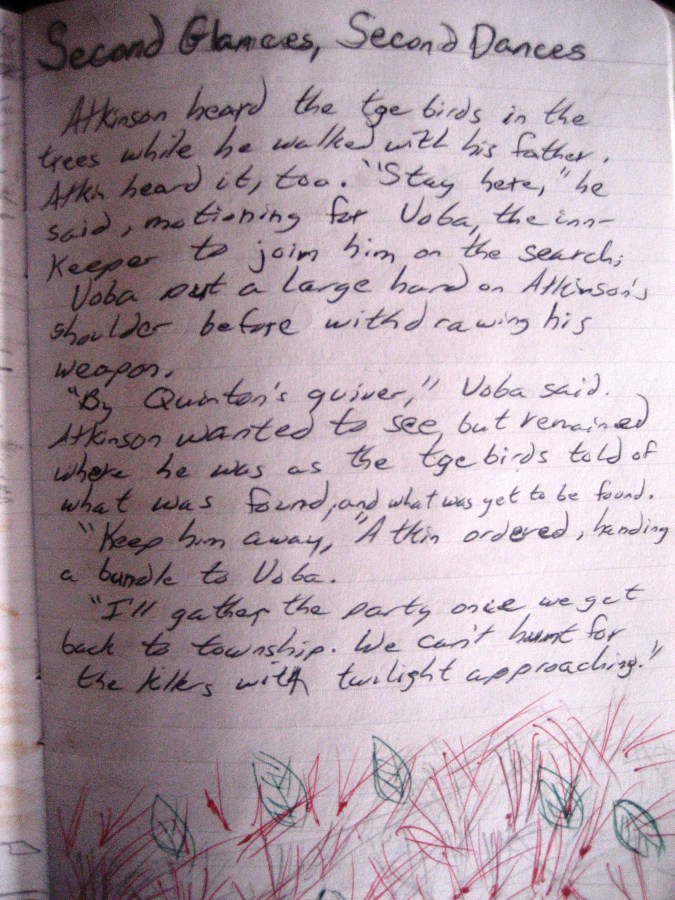 Second Glances, Second Dances
Atkinson heard the tge birds in the
trees while he walked with his father.
Atkin heard it, too. "Stay here," he
said, motioning for Voba, the inn-
keeper to join him on the search;
Voba put a large hand on Atkinson's
shoulder before withdrawing his
weapon.
"By Quinton's quiver," Voba said.
Atkinson wanted to see but remained
where he was as the tge birds told of
what was found, and what was yet to be found.
"Keep him away," Atkin ordered, handing
a bundle to Voba.
"I'll gather the party once we get
back to township. We can't hunt for
the killers with twilight approaching."